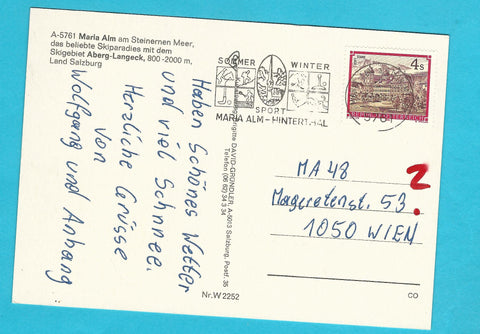 A-5761 Maria Alm am Steinernen Meer,
das beliebte Skiparadies mit dem
Skigebiet Aberg-Langeck, 800-2000 m,
Land Salzburg
Haben Schönes Wetter
und viel Schnnee.
Herzliche Grüsse
von
Wolfgang und Anhang
Brigitte DAVID-GRÜNDLER, A-5013 Salzburg, Postf. 35
Telefon (06 62) 34 3 34
Nr. W 2252
SOMMER WINTER
SPORT
MARIA ALM - HINTERTHAL
4 S
REPUBLIK ÖSTERREICH
5761
MA 48
Margaretenstr. 53
1050 WIEN
2.
CO